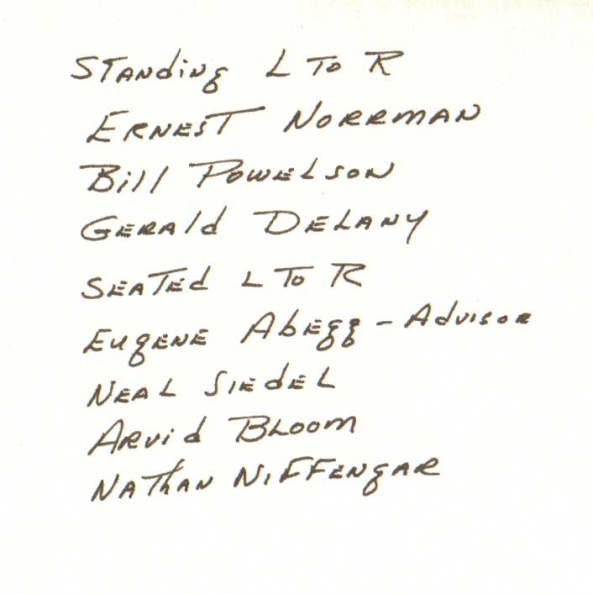 Standing L To R
Ernest Norrman
Bill Powelson
Gerald Delany
Seated L To R
Eugene Abegg - Advisor
Neal Siedel
Arvid Bloom
Nathan Niffengar